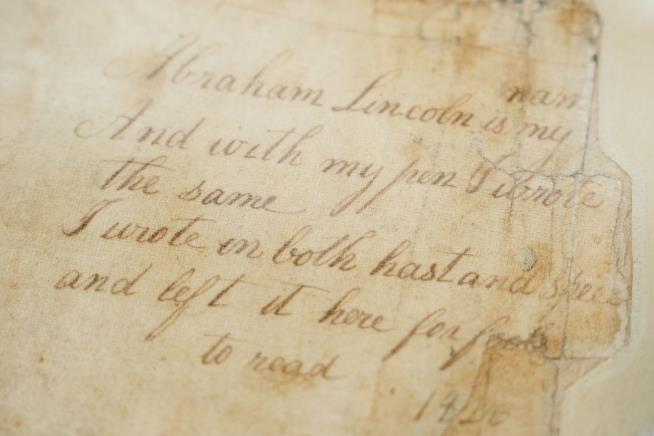 Abraham Lincoln is my nam
And with my pen I wrote
the same
I wrote in both hast and speed
and left it here for fools
to read